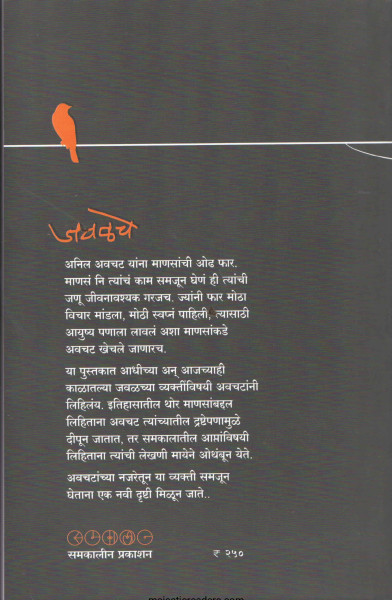 जवळचे
अनिल अवचट यांना माणसांची ओढ फार.
माणसं नि त्यांचं काम समजून घेणं ही त्यांची
जणू जीवनावश्यक गरजच. ज्यांनी फार मोठा
विचार मांडला, मोठी स्वप्नं पाहिली, त्यासाठी
आयुष्य पणाला लावलं अशा माणसांकडे
अवचट खेचले जाणारच.
या पुस्तकात आधीच्या अन् आजच्याही
काळातल्या जवळच्या व्यक्तींविषयी अवचटांनी
लिहिलंय. इतिहासातील थोर माणसांबद्दल
लिहिताना अवचट त्यांच्यातील द्रष्टेपणामुळे
दीपून जातात, तर समकालातील आप्तांविषयी
लिहिताना त्यांची लेखणी मायेने ओथंबून येते.
अवचटांच्या नजरेतून या व्यक्ती समजून
घेताना एक नवी दृष्टी मिळून जाते..
समकालीन प्रकाशन ₹ २५०